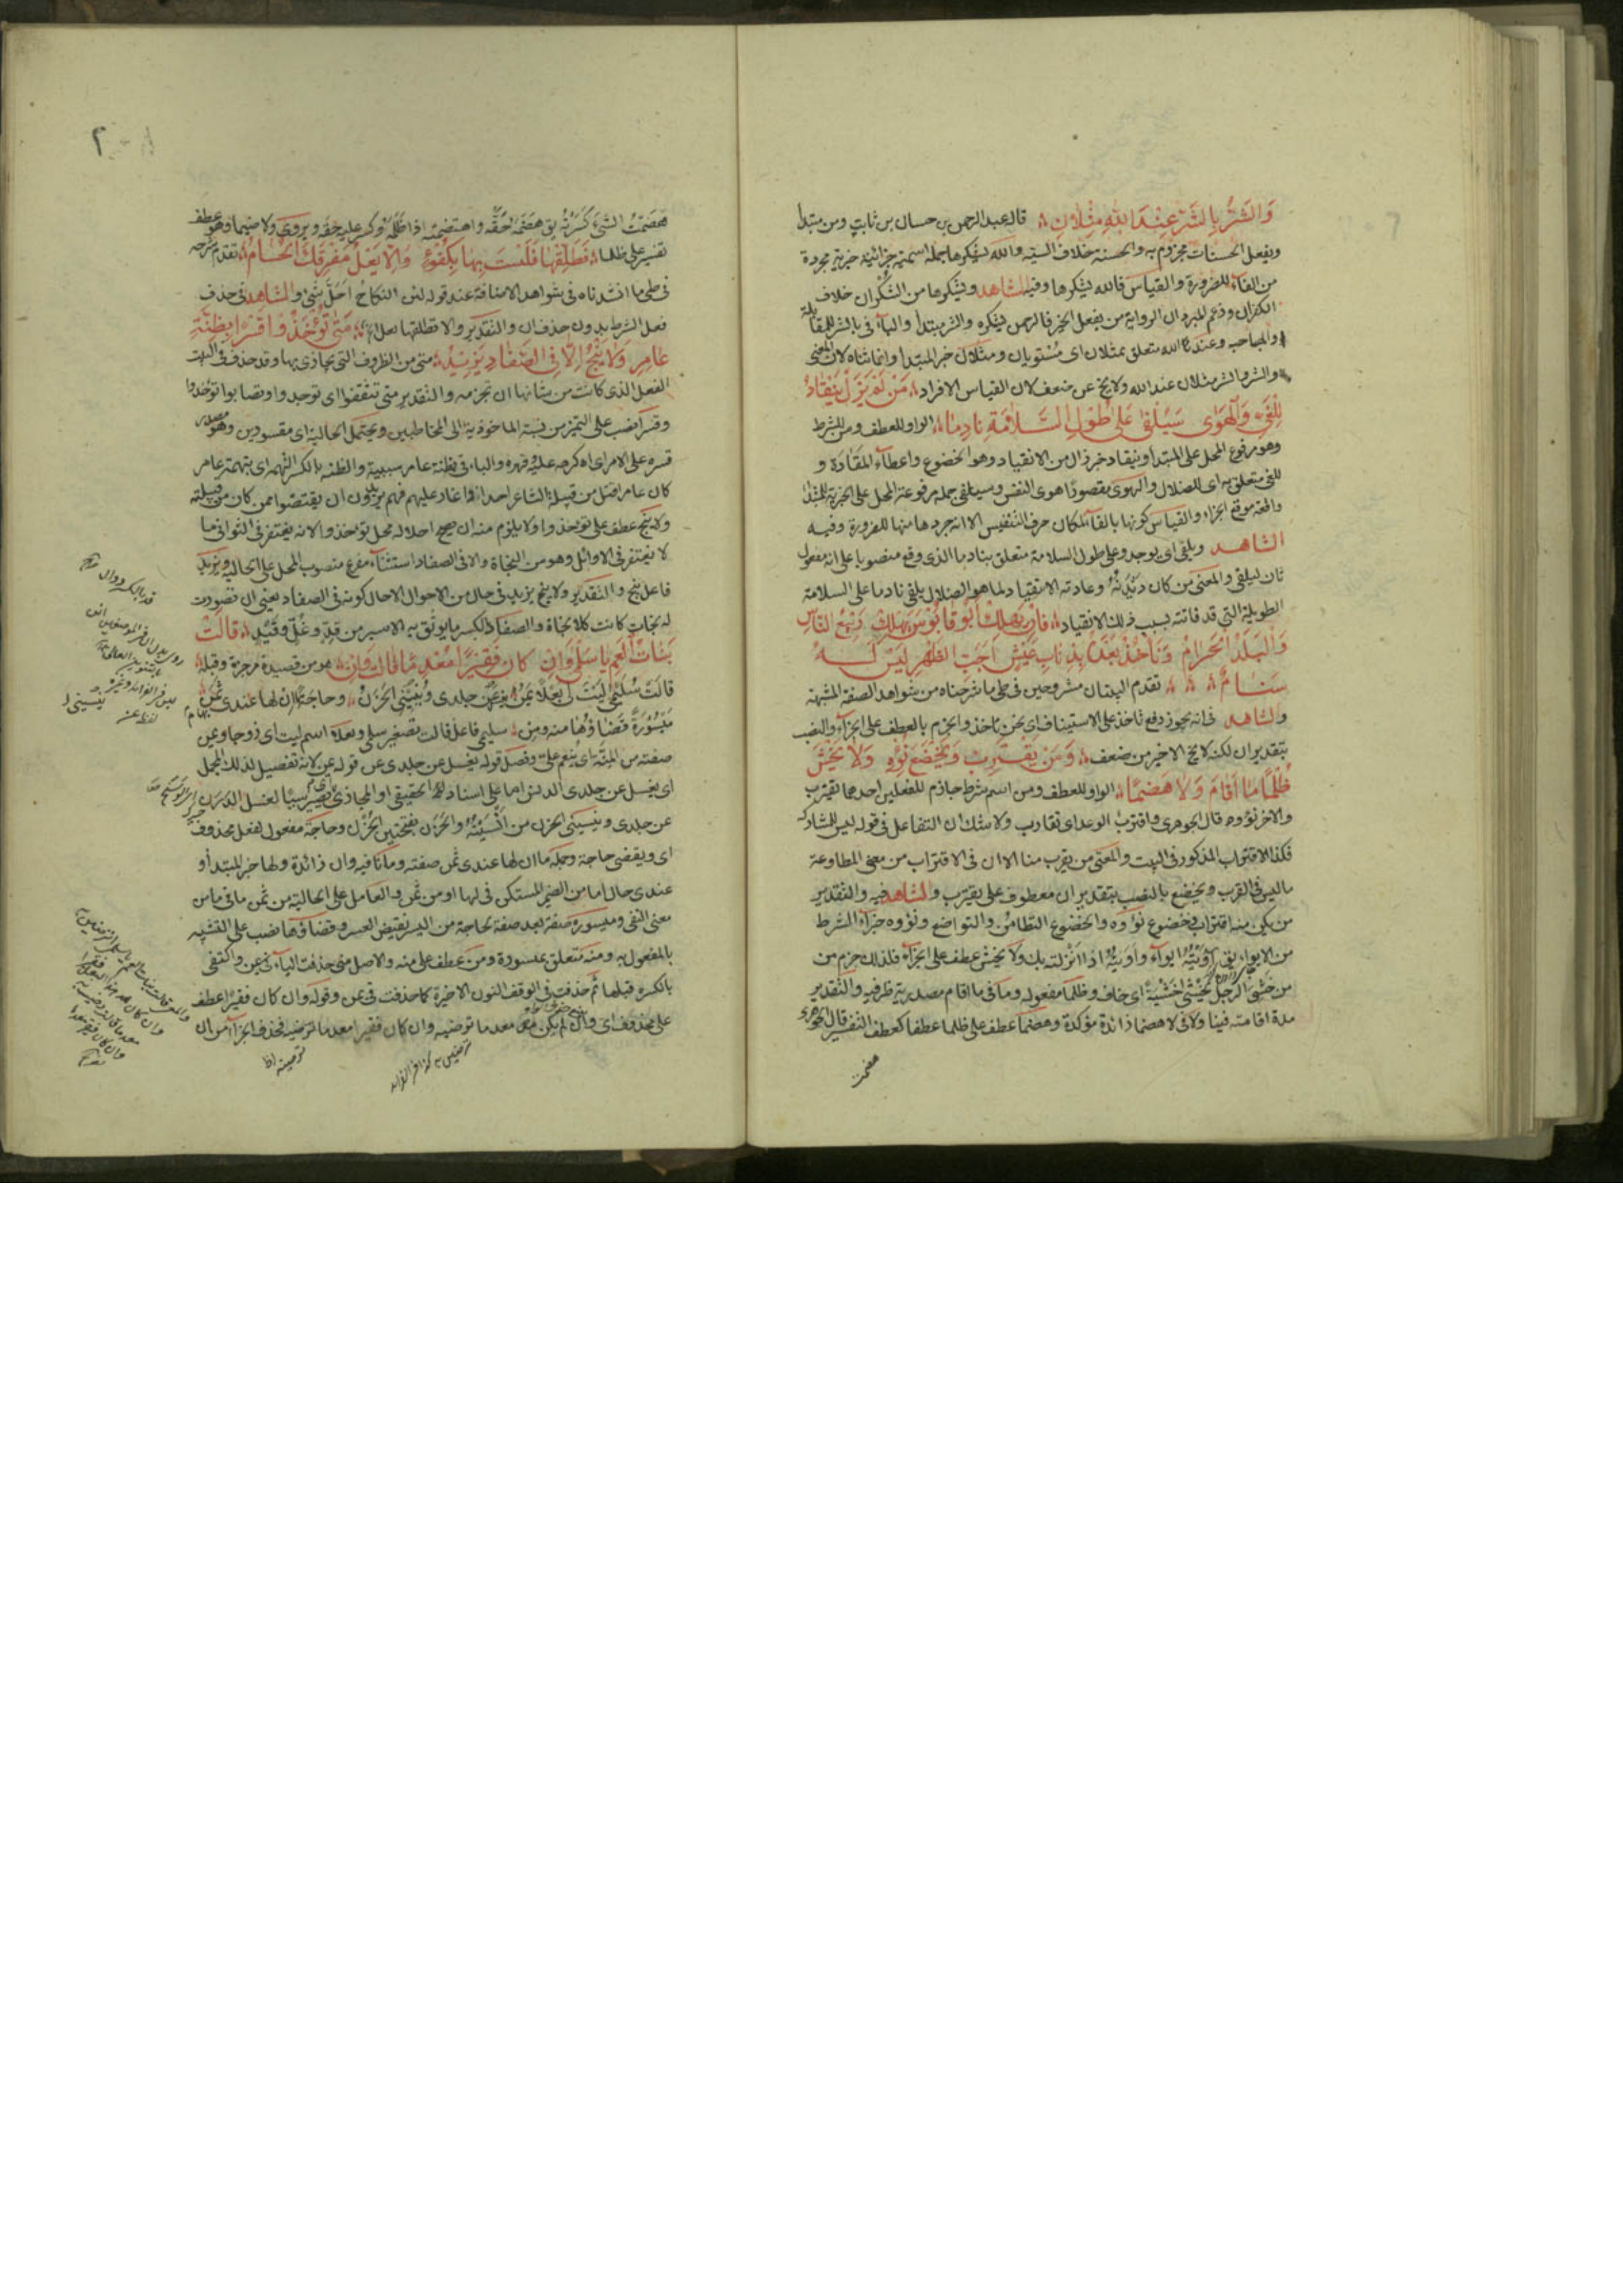 وَالشَّرُّ بِالشَّرِّ عِنْدَ اللهِ مِثْلَانِ قال عبد الرحمن بن حسان بن ثابت ومن مبتدأ
ويفعل الحسنات مجزوم به والحسنة خلاف السيئة والله يشكرها جملة اسمية جزائية خبرية مجردة
من الفآء للضرورة والقياس فالله يشكرها وفيه الشاهد ويشكرها من الشكران خلاف
الكفران وزعم المبرد ان الرواية من يفعل الخير فالرحمن يشكره والشر مبتدأ والبآء في بالشر للمقابلة
والمصاحبة وعند الله متعلق بمثلان اى مستويان ومثلان خبر المبتدأ وانما ثناه لان المعنى
والشر والشر مثلان عند الله ولا يخ عن ضعف لان القياس الافراد مَنْ لَمْ يَزَلْ يَنْقَادُ
لِلْغَيِّ وَالْهَوَى سَيُلْفَى عَلَى طُوْلِ السَّلَامَةِ نَادِمَا الواو للعطف ومن للشرط
وهو مرفوع المحل على المبتدأ وينقاد خبر زال من الانقياد وهو الخضوع واعطآء المقادة و
للغى متعلق به اى للضلال والهوى مقصورًا هوى النفس وسيلفى جملة مرفوعة المحل على الخبرية للمبتدأ
واقعة موقع الجزاء والقياس كونها بالفآء لمكان حرف التنفيس الا انه جردها منها للضرورة وفيه
الشاهد ويلفى اى يوجد وعلى طول السلامة متعلق بنادما الذى وقع منصوبا على انه مفعول
ثان ليلفى والمعنى من كان وعادته الانقياد لما هو الضلال يلفى نادما على السلامة
الطويلة التى قد فاتته بسبب ذلك الانقياد فَاِنْ يَهْلِكْ اَبُوْ قَابُوْسَ يَهْلِكْ رَبِيْعُ النَّاسِ
وَالْبَلَدُ الْحَرَامُ وَنَأْخُذْ بَعْدَهُ بِذِنَابِ عَيْشٍ اَجَبِّ الظَّهْرِ لَيْسَ لَهُ
سَنَامُ تقدم البيتان مشروحين فى طى ما شرحناه من شواهد الصفة المشبهة
والشاهد فى انه يجوز رفع ناخذ على الاستيناف اى نحن ناخذ والجزم بالعطف على الجزآء والنصب
بتقدير ان لكنه لا يخ الاخير من ضعف وَمَنْ يَقْتَرِبْ مِنَّا وَيَخْضَعَ نُؤْوِهِ وَلَا يَخْشَ
ظُلْمًا مَا اَقَامَ وَلَا هَضْمًا الواو للعطف ومن اسم شرط جازم للفعلين احدهما يقترب
والاخر نؤوه قال الجوهرى واقترب الوعد اى تقارب ولا شك ان التفاعل فى قوله ليس للمشاركة
فكذا الاقتراب المذكور فى البيت والمعنى من يقرب منا الا ان فى الاقتراب من معنى المطاوعة
ما ليس فى القرب ويخضع بالنصب بتقدير ان معطوف على يقترب والشاهد فيه والتقدير
من يكن منه اقتراب فخضوع نؤوه والخضوع التطامن والتواضع ونؤوه جزآء الشرط
من الايواء يق آويته ايوآء وأويته اذا انزلته بك ولا يخش عطف على الجزآء فلذلك جزم من
من خشى الرجل يخشى خشية اى خاف وظلما مفعوله وما فى ما اقام مصدرية ظرفية والتقدير
مدة اقامته فينا ولا فى لا هضما زائدة مؤكدة وهضما عطف على ظلما عطفا كعطف التفسير قال الجوهرى
هضمت
هضمت الشئ كسرته يق هضمه حقه واهتضمه اذا ظلمه وكسر عليه حقه ويروى ولا ضيما وهو عطف
تفسير على ظلما فَطَلِّقْهَا فَلَسْتَ لَهَا بِكُفْوٍ وَاِلَّا يَعْلُ مَفْرِقَكَ الْحُسَامُ تقدم شرحه
فى طى ما انشدناه فى شواهد الاضافة عند قوله لئن النكاح احل شئ والشاهد فى حذف
فعل الشرط بدون حذف ان والتقدير والا تطلقها يعل اه مَتَى تُؤْخَذُوْا قَسْرًا بِظِنَّةِ
عَامِرٍ وَلَا يَنْجُ اِلَّا فِى الصِّفَادِ يَزِيْدُ متى من الظروف التى يجازى بها وقد حذف فى البيت
الفعل الذى كانت من شانها ان تجزمه والتقدير متى تثقفوا اى توجدوا وتصابوا تؤخذوا
وقسرا نصب على التميز من نسبة الماخوذية الى المخاطبين ويحتمل الحالية اى مقسورين وهو مصدر
قسره على الامر اى اكرهه عليه وقهره والباء فى بظنة عامر سببية والظنه بالكسر التهمة اى بتهمة عامر
كان عامر قتل من قبيلة الشاعر احدا فهم يريدون ان يقتصوا ممن كان من قبيلته
ولا ينج عطف على تؤخذوا ولا يلزم منه ان يصح احلاله محل تؤخذوا لانه يغتفر فى الثوانى ما
لا يغتفر فى الاوائل وهو من النجاة والا فى الصفاد استثنآء مفرغ منصوب المحل على الحالية ويزيد
فاعل ينج والتقدير ولا ينج يزيد فى حال من الاحوال الا حال كونه فى الصفاد يعنى ان تصورت
له نجات كانت كلا نجاة والصفاد بالكسر ما يوثق به الاسير من قد وغل وقيد قَالَتْ
بَنَاتُ الْعَمِّ يَا سَلْمَى وَاِنْ كَانَ فَقِيْرًا مُعْدِمًا قَالَتْ وَاِنْ هو من قصيدة مرجزة وقبله
قالت سليمى ليت لى بعلا يمن يغسل جلدى وينسينى الحزن وحاجة ما ان لها عندى ثمن
ميسورة قضاؤها منه ومن سليمى فاعل قالت تصغير سلمى وبعلا اسم ليت اى زوجا ويمن
صفته من المنة اى ينعم على وفصل قوله يغسل عن جلدى عن قوله يمن لانه تفصيل لذلك المجمل
اى يغسل عن جلدى الدنس اما على اسناده الحقيقى او المجازى اى يصير سببا لغسل الدرن
عن جلدى وينسينى الحزن من انسيته والحزن بفتحتين الحزن وحاجة مفعول لفعل محذوف
اى ويقضى حاجة وجملة ما ان لها عندى ثمن صفته وما نافية وان زائدة ولها خبر المبتدأ و
عندى حال اما من الضمير المستكن فى لها او من ثمن والعامل على الحالية من ثمن ما فى ما من
معنى النفى وميسورة صفة بعد صفة لحاجة من اليسر نقيض العسر وقضاؤها نصب على التشبيه
بالمفعول به ومنه متعلق بميسورة ومن عطف على منه والاصل منى حذفت اليآء واكتفى
بالكسره قبلها ثم حذفت فى الوقف النون الاخيرة كما حذفت فى يمن وقوله وان كان فقيرا عطف
على محذوف اى وان لم يكن معدما ترضيه وان كان فقيرا معدما ترضيه فحذف الجزآء من ان